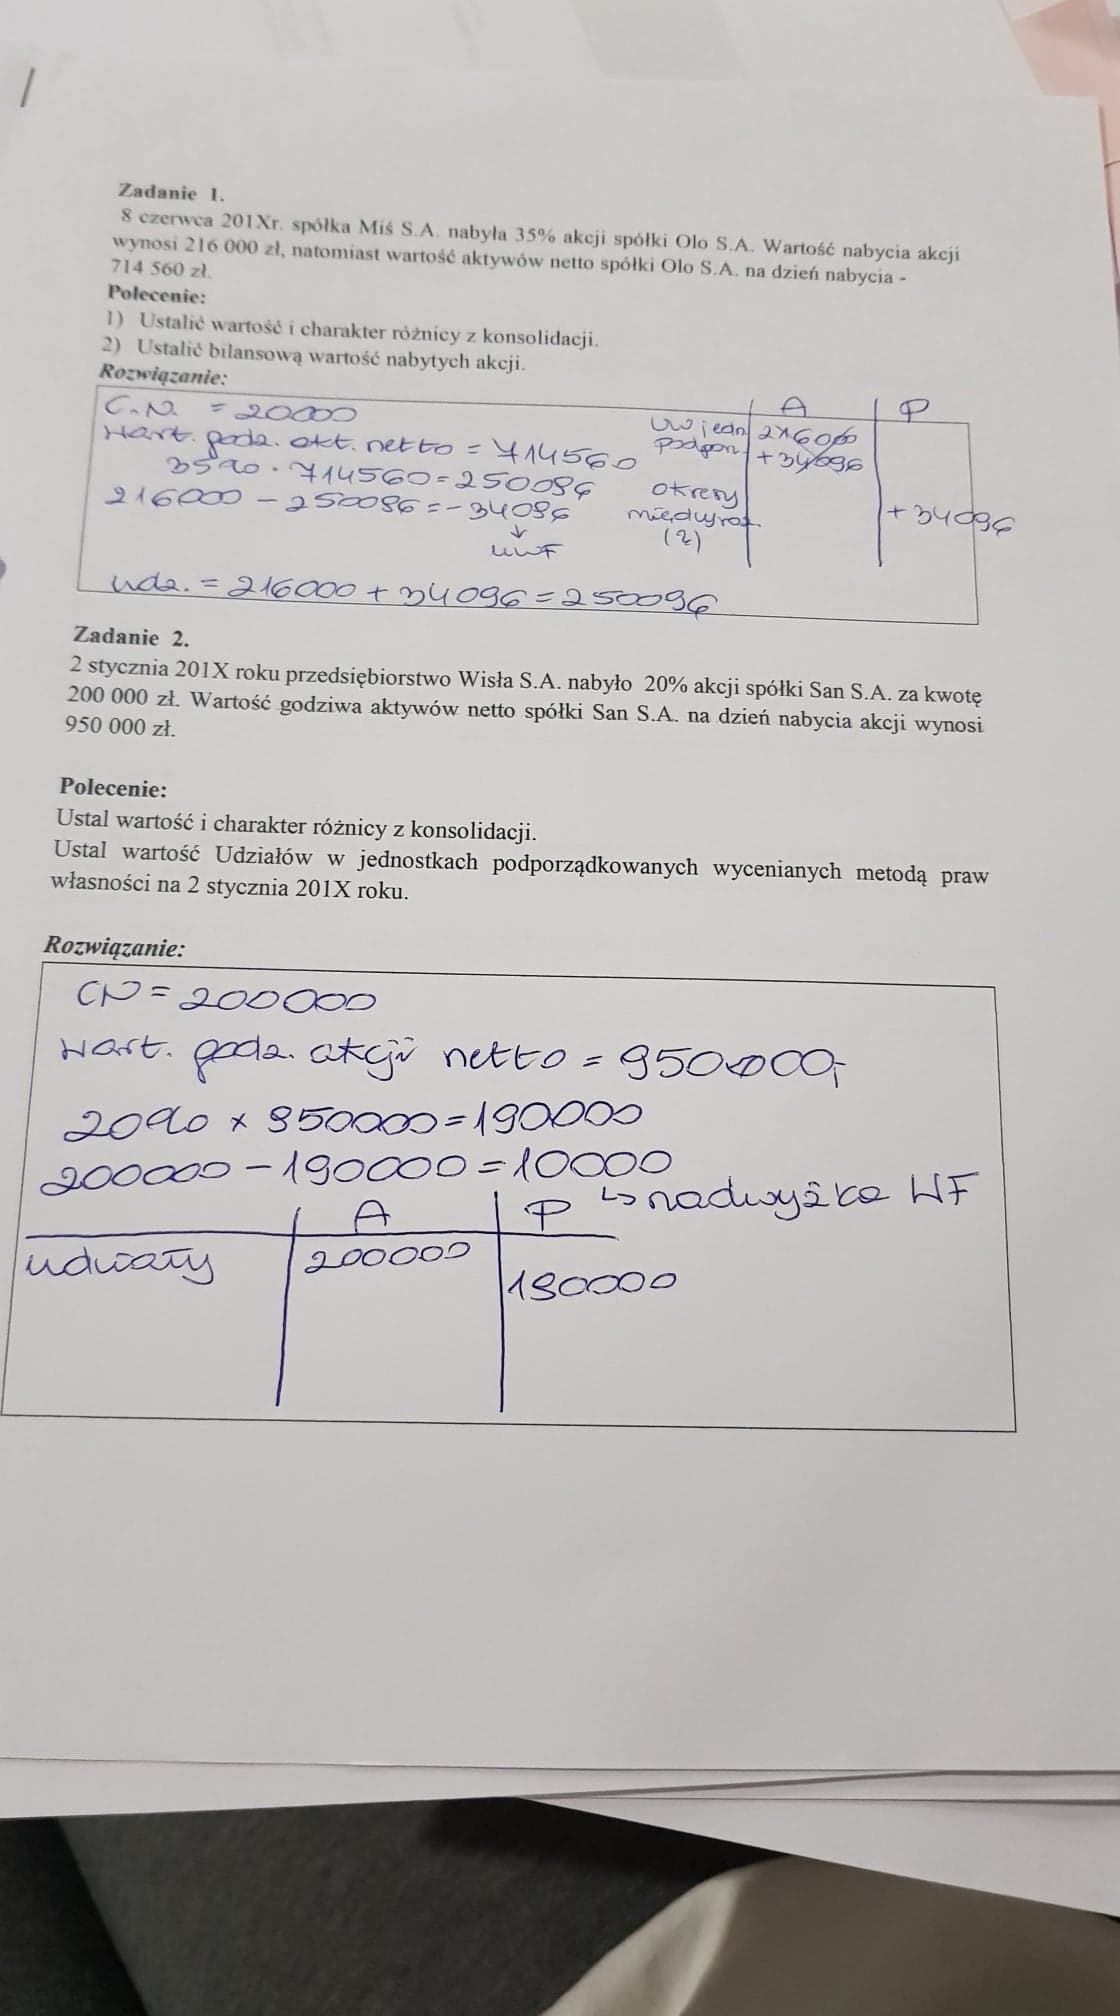 Zadanie 1.
8 czerwca 201Xr. spółka Miś S.A. nabyła 35% akcji spółki Olo S.A. Wartość nabycia akcji
wynosi 216 000 zł, natomiast wartość aktywów netto spółki Olo S.A. na dzień nabycia -
714 560 zł.
Polecenie:
1) Ustalić wartość i charakter różnicy z konsolidacji.
2) Ustalić bilansową wartość nabytych akcji.
Rozwiązanie:
C.N. = 20000
Wart. godz. akt. netto = 714560
35% · 714560 = 250096
216000 - 250096 = -34096
↓
UWF
A P
UW jedn 216000
podpor. + 34096
okresy
międyroz. + 34096
(2)
udz. = 216000 + 34096 = 250096
Zadanie 2.
2 stycznia 201X roku przedsiębiorstwo Wisła S.A. nabyło 20% akcji spółki San S.A. za kwotę
200 000 zł. Wartość godziwa aktywów netto spółki San S.A. na dzień nabycia akcji wynosi
950 000 zł.
Polecenie:
Ustal wartość i charakter różnicy z konsolidacji.
Ustal wartość Udziałów w jednostkach podporządkowanych wycenianych metodą praw
własności na 2 stycznia 201X roku.
Rozwiązanie:
CN = 200000
Wart. godz. akcji netto = 950000,-
20% x 950000 = 190000
200000 - 190000 = 10000
↳ nadwyżka WF
A P
udziały 200000
190000